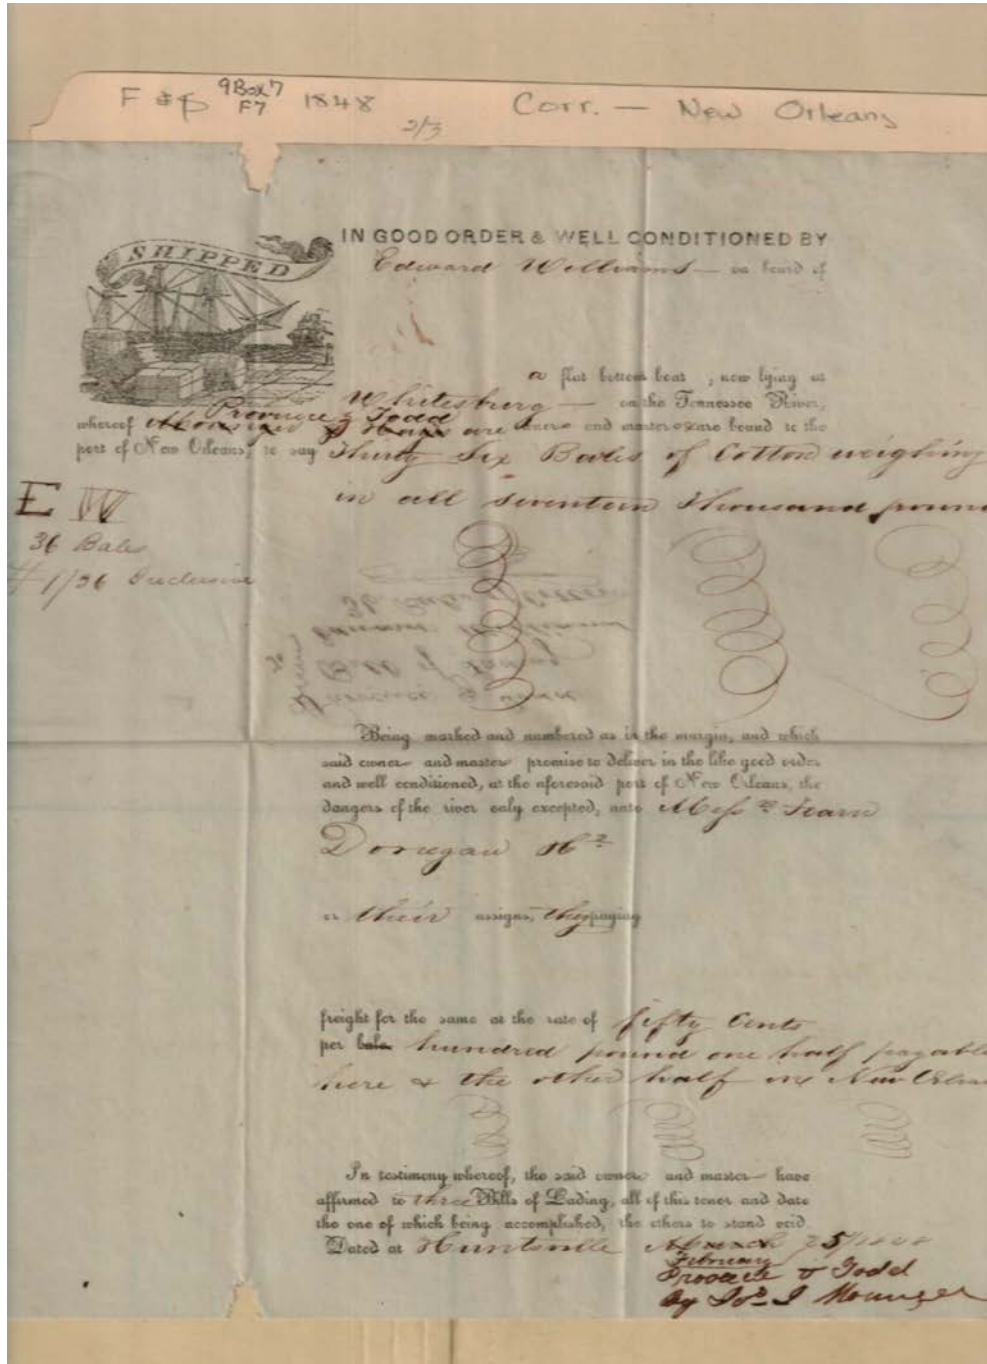 F & P 9Box7 F7 1848 Corr. — New Orleans
2/3
SHIPPED
IN GOOD ORDER & WELL CONDITIONED BY
Edward Williams — on board of
a flat bottom boat, now lying at
Whitesburg — on the Tennessee River,
Province & Todd
whereof are owners and masters are bound to the
port of New Orleans, to say Thirty Six Bales of Cotton weighing
in all seventeen thousand poun
E W
36 Bales
# 1/36 Inclusive
Being marked and numbered as in the margin, and which
said owner and master promise to deliver in the like good order
and well conditioned, at the aforesaid port of New Orleans, the
dangers of the river only excepted, unto Messrs Fearn
Donegan & Co
or their assigns, they paying
freight for the same at the rate of fifty Cents
per bale hundred pound one half payabl
here & the other half in New Orlea
In testimony whereof, the said owner and master have
affirmed to three Bills of Lading, all of this tenor and date
the one of which being accomplished, the others to stand void.
Dated at Huntsville March 25
February
Province & Todd
By Jos. J